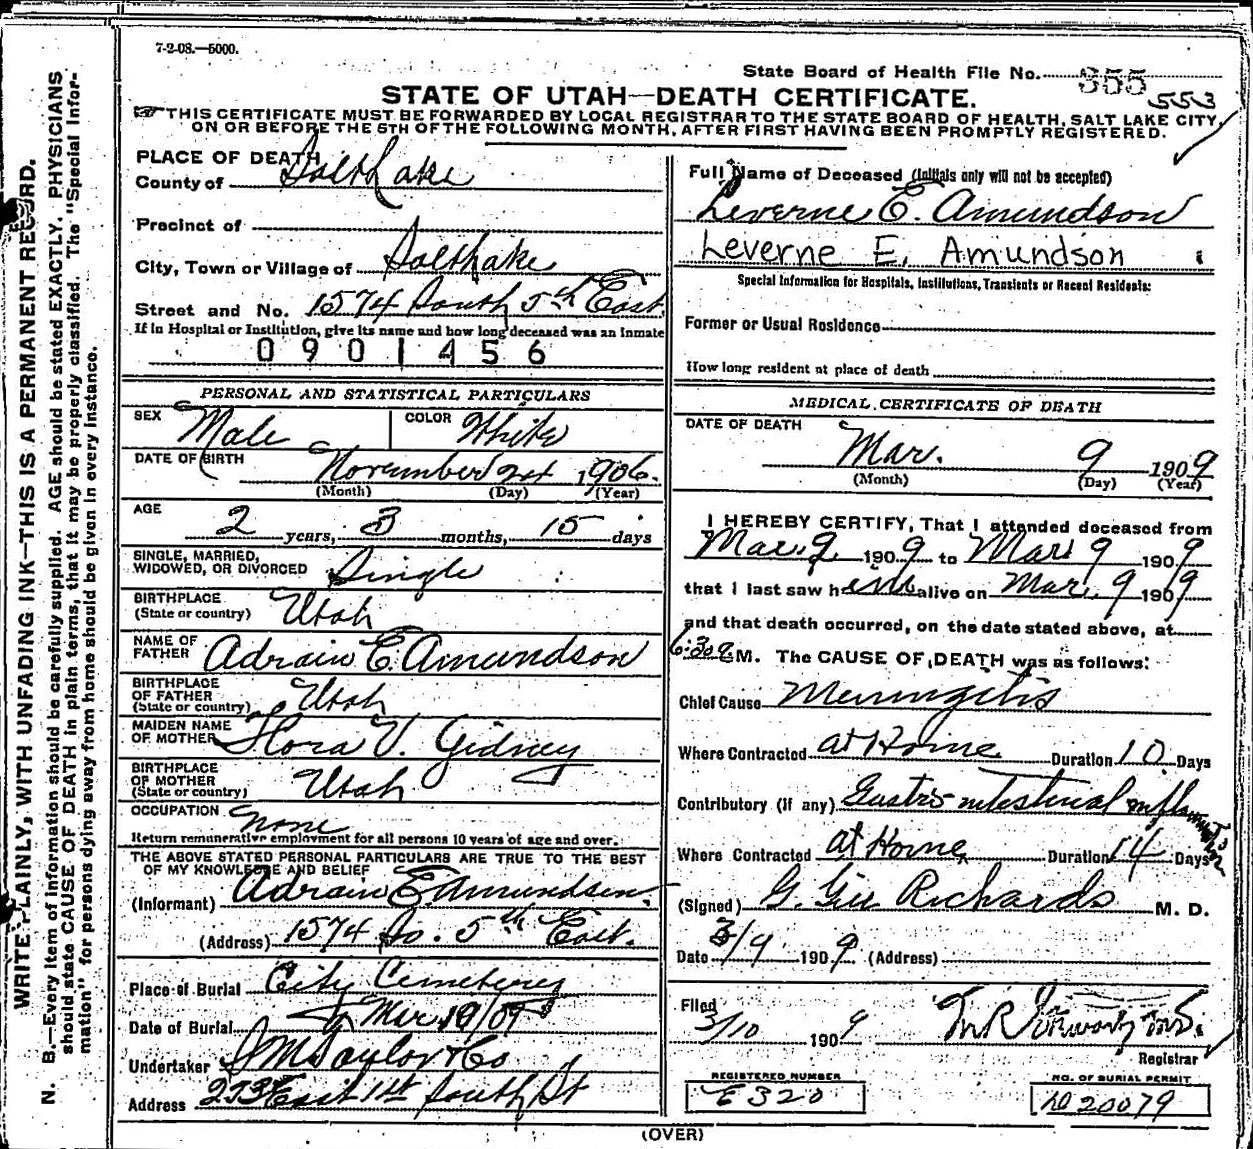 7-2-08.—5000.
State Board of Health File No. 355 553
STATE OF UTAH—DEATH CERTIFICATE.
THIS CERTIFICATE MUST BE FORWARDED BY LOCAL REGISTRAR TO THE STATE BOARD OF HEALTH, SALT LAKE CITY,
ON OR BEFORE THE 5TH OF THE FOLLOWING MONTH, AFTER FIRST HAVING BEEN PROMPTLY REGISTERED.
WRITE PLAINLY, WITH UNFADING INK—THIS IS A PERMANENT RECORD.
N. B.—Every item of information should be carefully supplied. AGE should be stated EXACTLY. PHYSICIANS
should state CAUSE OF DEATH in plain terms, that it may be properly classified. The "Special Infor-
mation" for persons dying away from home should be given in every instance.
PLACE OF DEATH
County of Salt Lake
Precinct of
City, Town or Village of Salt Lake
Street and No. 1574 South 5th East
If in Hospital or Institution, give its name and how long deceased was an inmate
0901456
PERSONAL AND STATISTICAL PARTICULARS
SEX Male COLOR White
DATE OF BIRTH November 24 1906.
(Month) (Day) (Year)
AGE
2 years, 3 months, 15 days
SINGLE, MARRIED,
WIDOWED, OR DIVORCED Single
BIRTHPLACE
(State or country) Utah
NAME OF
FATHER Adrain E. Amundson
BIRTHPLACE
OF FATHER
(State or country) Utah
MAIDEN NAME
OF MOTHER Flora V. Gidney
BIRTHPLACE
OF MOTHER
(State or country) Utah
OCCUPATION none
Return remunerative employment for all persons 10 years of age and over.
THE ABOVE STATED PERSONAL PARTICULARS ARE TRUE TO THE BEST
OF MY KNOWLEDGE AND BELIEF
(Informant) Adrain E Amundsen.
(Address) 1574 So. 5th East.
Place of Burial City Cemetery
Date of Burial Mar 10/09
Undertaker S M Taylor & Co
Address 253 East 1st South St
Full Name of Deceased (Initials only will not be accepted)
Leverne E. Amundson
Leverne E. Amundson
Special Information for Hospitals, Institutions, Transients or Recent Residents:
Former or Usual Residence
How long resident at place of death
MEDICAL CERTIFICATE OF DEATH
DATE OF DEATH
Mar. 9 1909
(Month) (Day) (Year)
I HEREBY CERTIFY, That I attended deceased from
Mar. 9 1909 to Mar 9 1909
that I last saw him alive on Mar. 9 1909
and that death occurred, on the date stated above, at
6:30 M. The CAUSE OF DEATH was as follows:
Chief Cause Meningitis
Where Contracted at Home Duration 10 Days
Contributory (if any) Gastro-intestinal inflammation
Where Contracted at Home Duration 14 Days
(Signed) G. Gill Richards M. D.
Date 3/9 1909 (Address)
Filed
3/10 1909
Registrar
REGISTERED NUMBER
E 320
NO. OF BURIAL PERMIT
20079
(OVER)